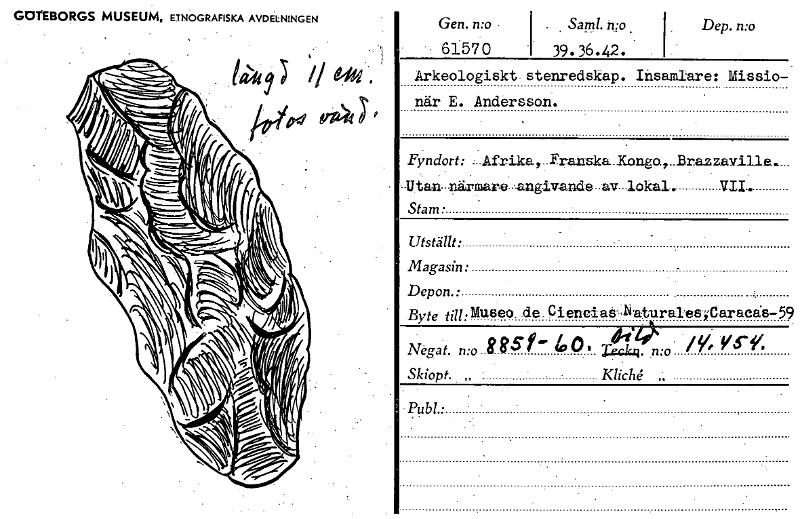 GÖTEBORGS MUSEUM, ETNOGRAFISKA AVDELNINGEN
längd 11 cm.
fotos vänd.
Gen. n:o Saml. n:o Dep. n:o
61570 39.36.42.
Arkeologiskt stenredskap. Insamlare: Missio-
när E. Andersson.
Fyndort: Afrika, Franska Kongo, Brazzaville.
Utan närmare angivande av lokal. VII.
Stam:
Utställt:
Magasin:
Depon.:
Byte till: Museo de Ciencias Naturales, Caracas-59
bild
Negat. n:o 8859-60. Teckn. n:o 14.454.
Skiopt. „ Kliché „
Publ.: